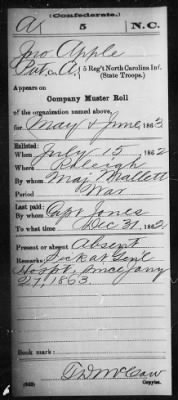 (Confederate.)
A 5 N.C.
Jno Apple
Pvt, Co. A, 5 Reg't North Carolina Inf.
(State Troops.)
Appears on
Company Muster Roll
of the organization named above,
for May & June, 1863.
Enlisted:
When July 15, 1862
Where Raleigh
By whom Maj Mallett
Period War
Last paid:
By whom Capt Jones
To what time Dec 31, 1862
Present or absent Absent
Remarks: Sick at Genl
Hospt, since Jany
27, 1863.
Book mark:
(642) T D McCaw
Copyist.